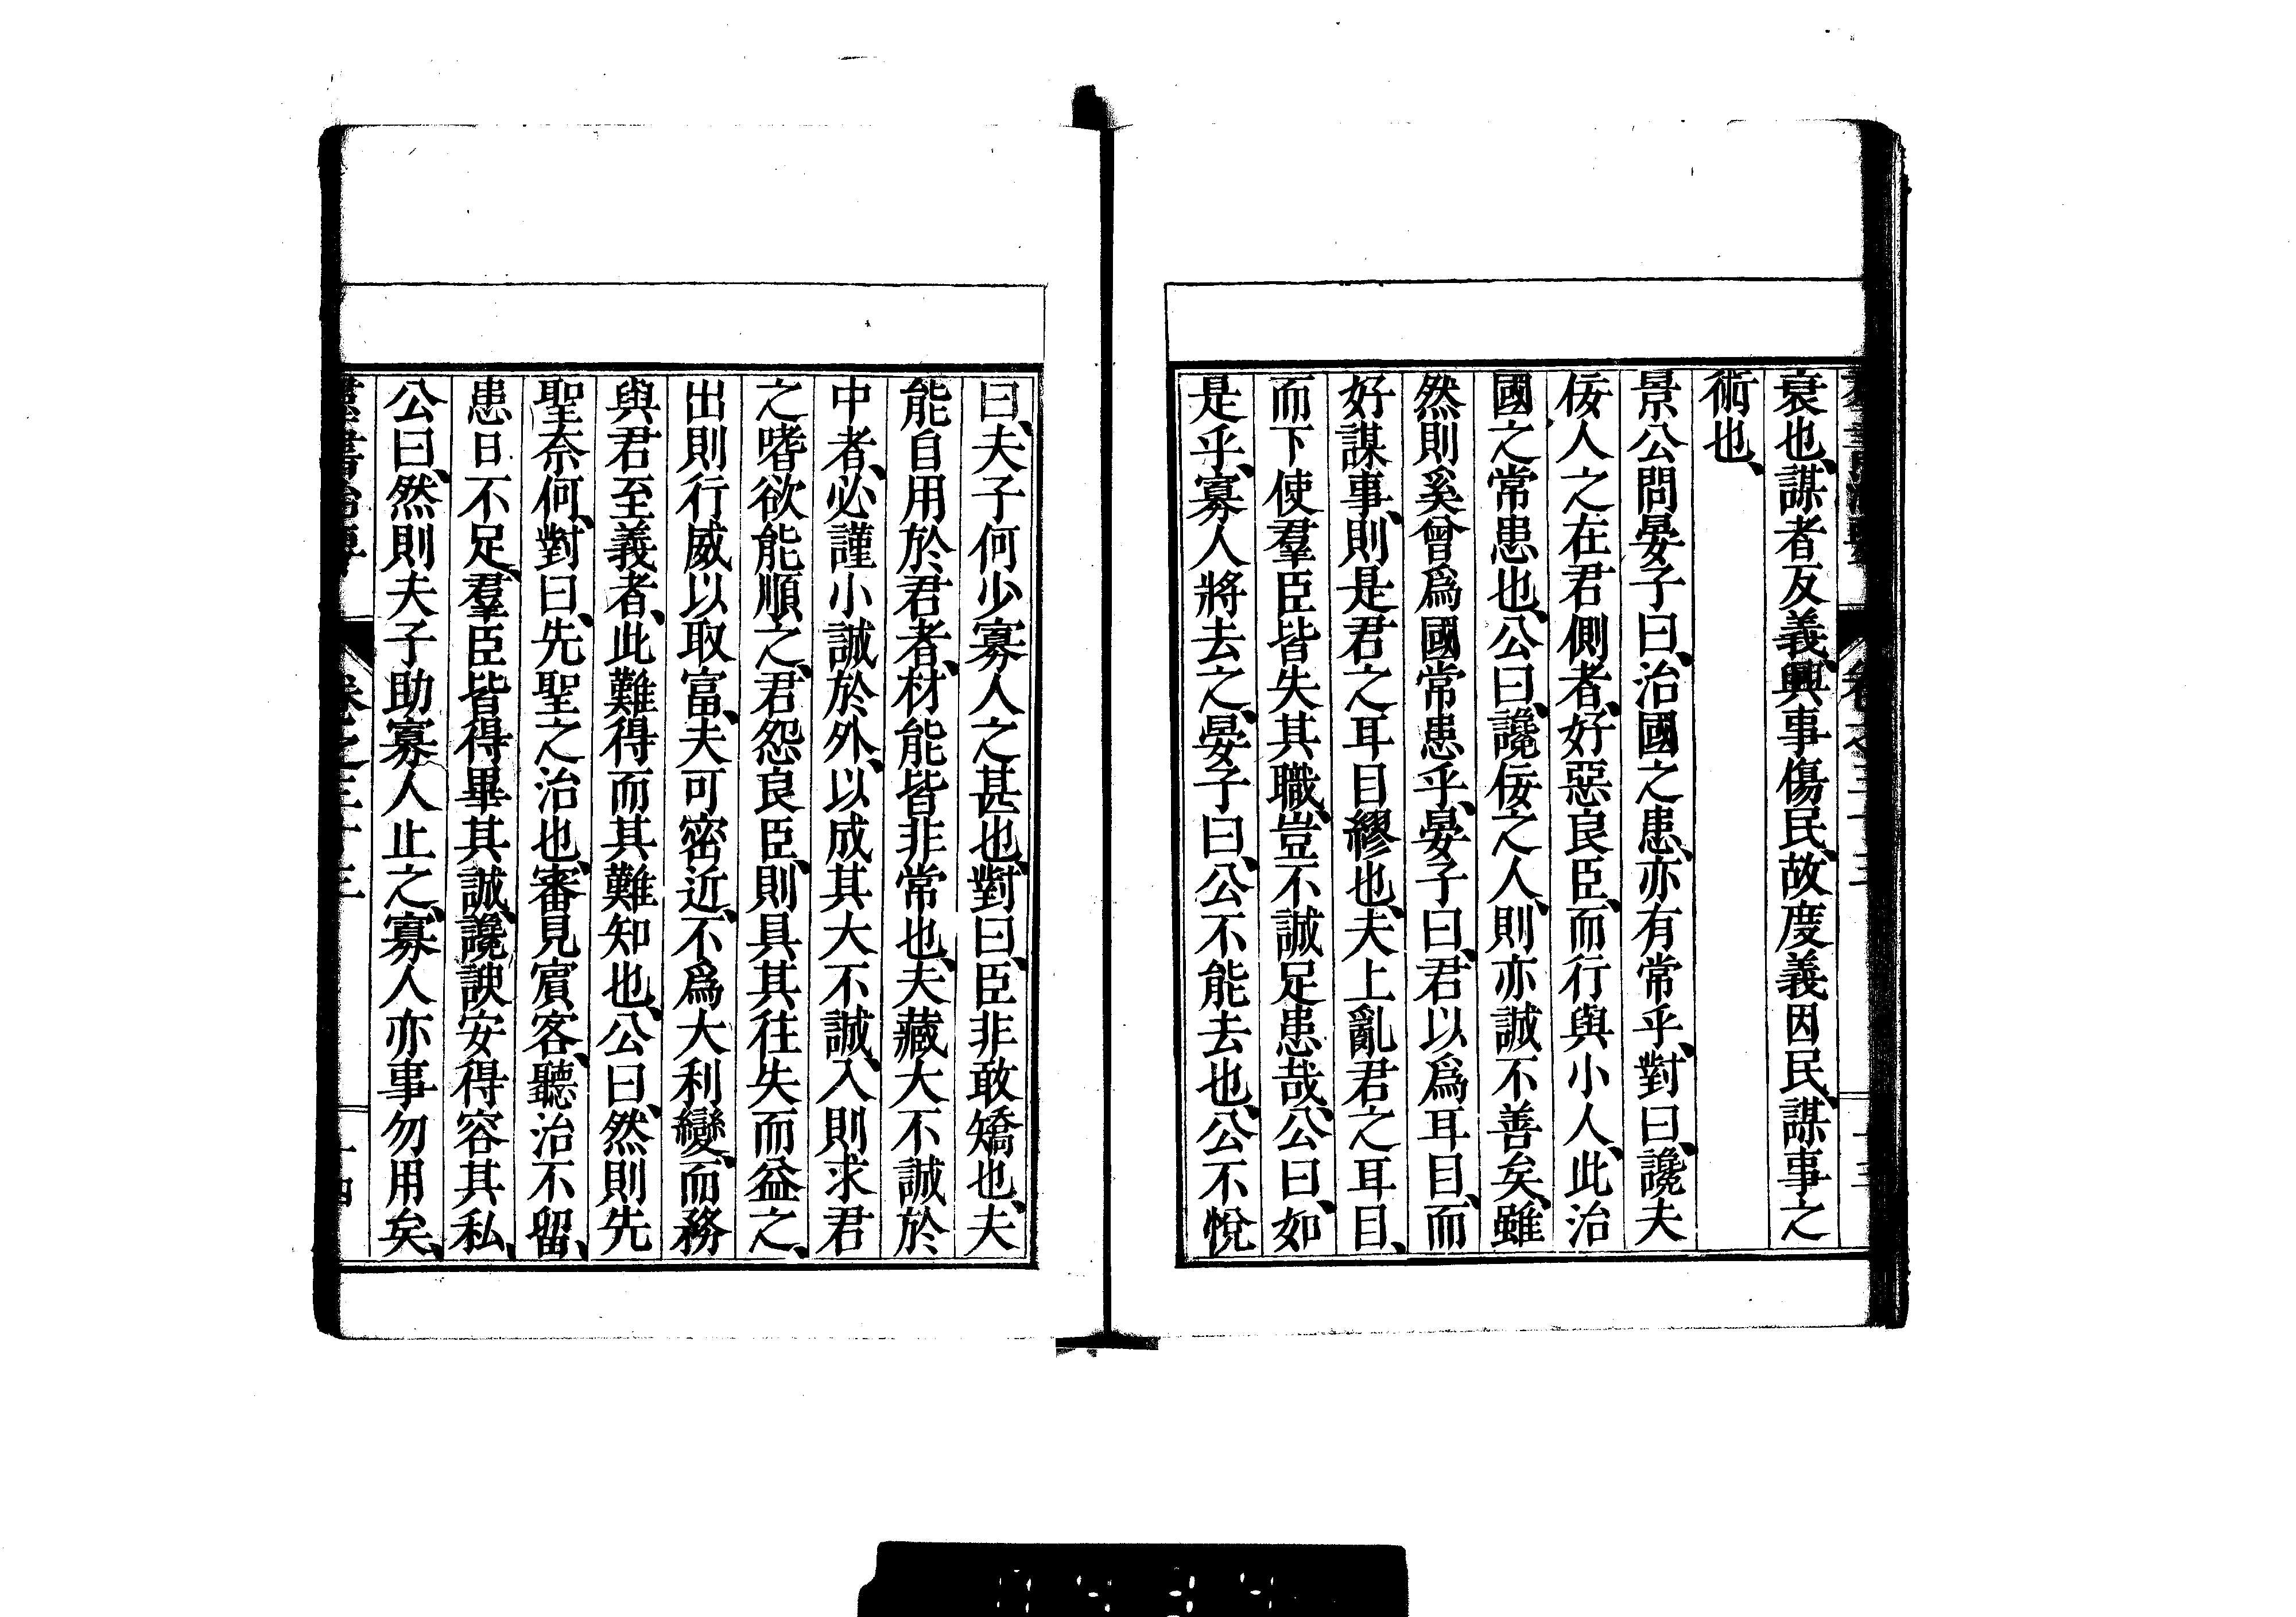 衰也、謀者反義、興事傷民、故度義因民、謀事之
術也、
景公問晏子曰、治國之患、亦有常乎、對曰、讒夫
佞人之在君側者、好惡良臣、而行與小人、此治
國之常患也、公曰、讒佞之人、則亦誠不善矣、雖
然則奚曾爲國常患乎、晏子曰、君以爲耳目、而
好謀事、則是君之耳目繆也、夫上亂君之耳目、
而下使羣臣皆失其職、豈不誠足患哉、公曰、如
是乎、寡人將去之、晏子曰、公不能去也、公不悅
曰、夫子何少寡人之甚也、對曰、臣非敢矯也、夫
能自用於君者、材能皆非常也、夫藏大不誠於
中者、必謹小誠於外、以成其大不誠、入則求君
之嗜欲能順之、君怨良臣、則具其往失而益之、
出則行威以取富、夫可密近、不爲大利變、而務
與君至義者、此難得而其難知也、公曰、然則先
聖奈何、對曰、先聖之治也、審見賓客、聽治不留、
患日不足、羣臣皆得畢其誠、讒諛安得容其私、
公曰、然則夫子助寡人止之、寡人亦事勿用矣、
羣書治要 卷之三十三 十四